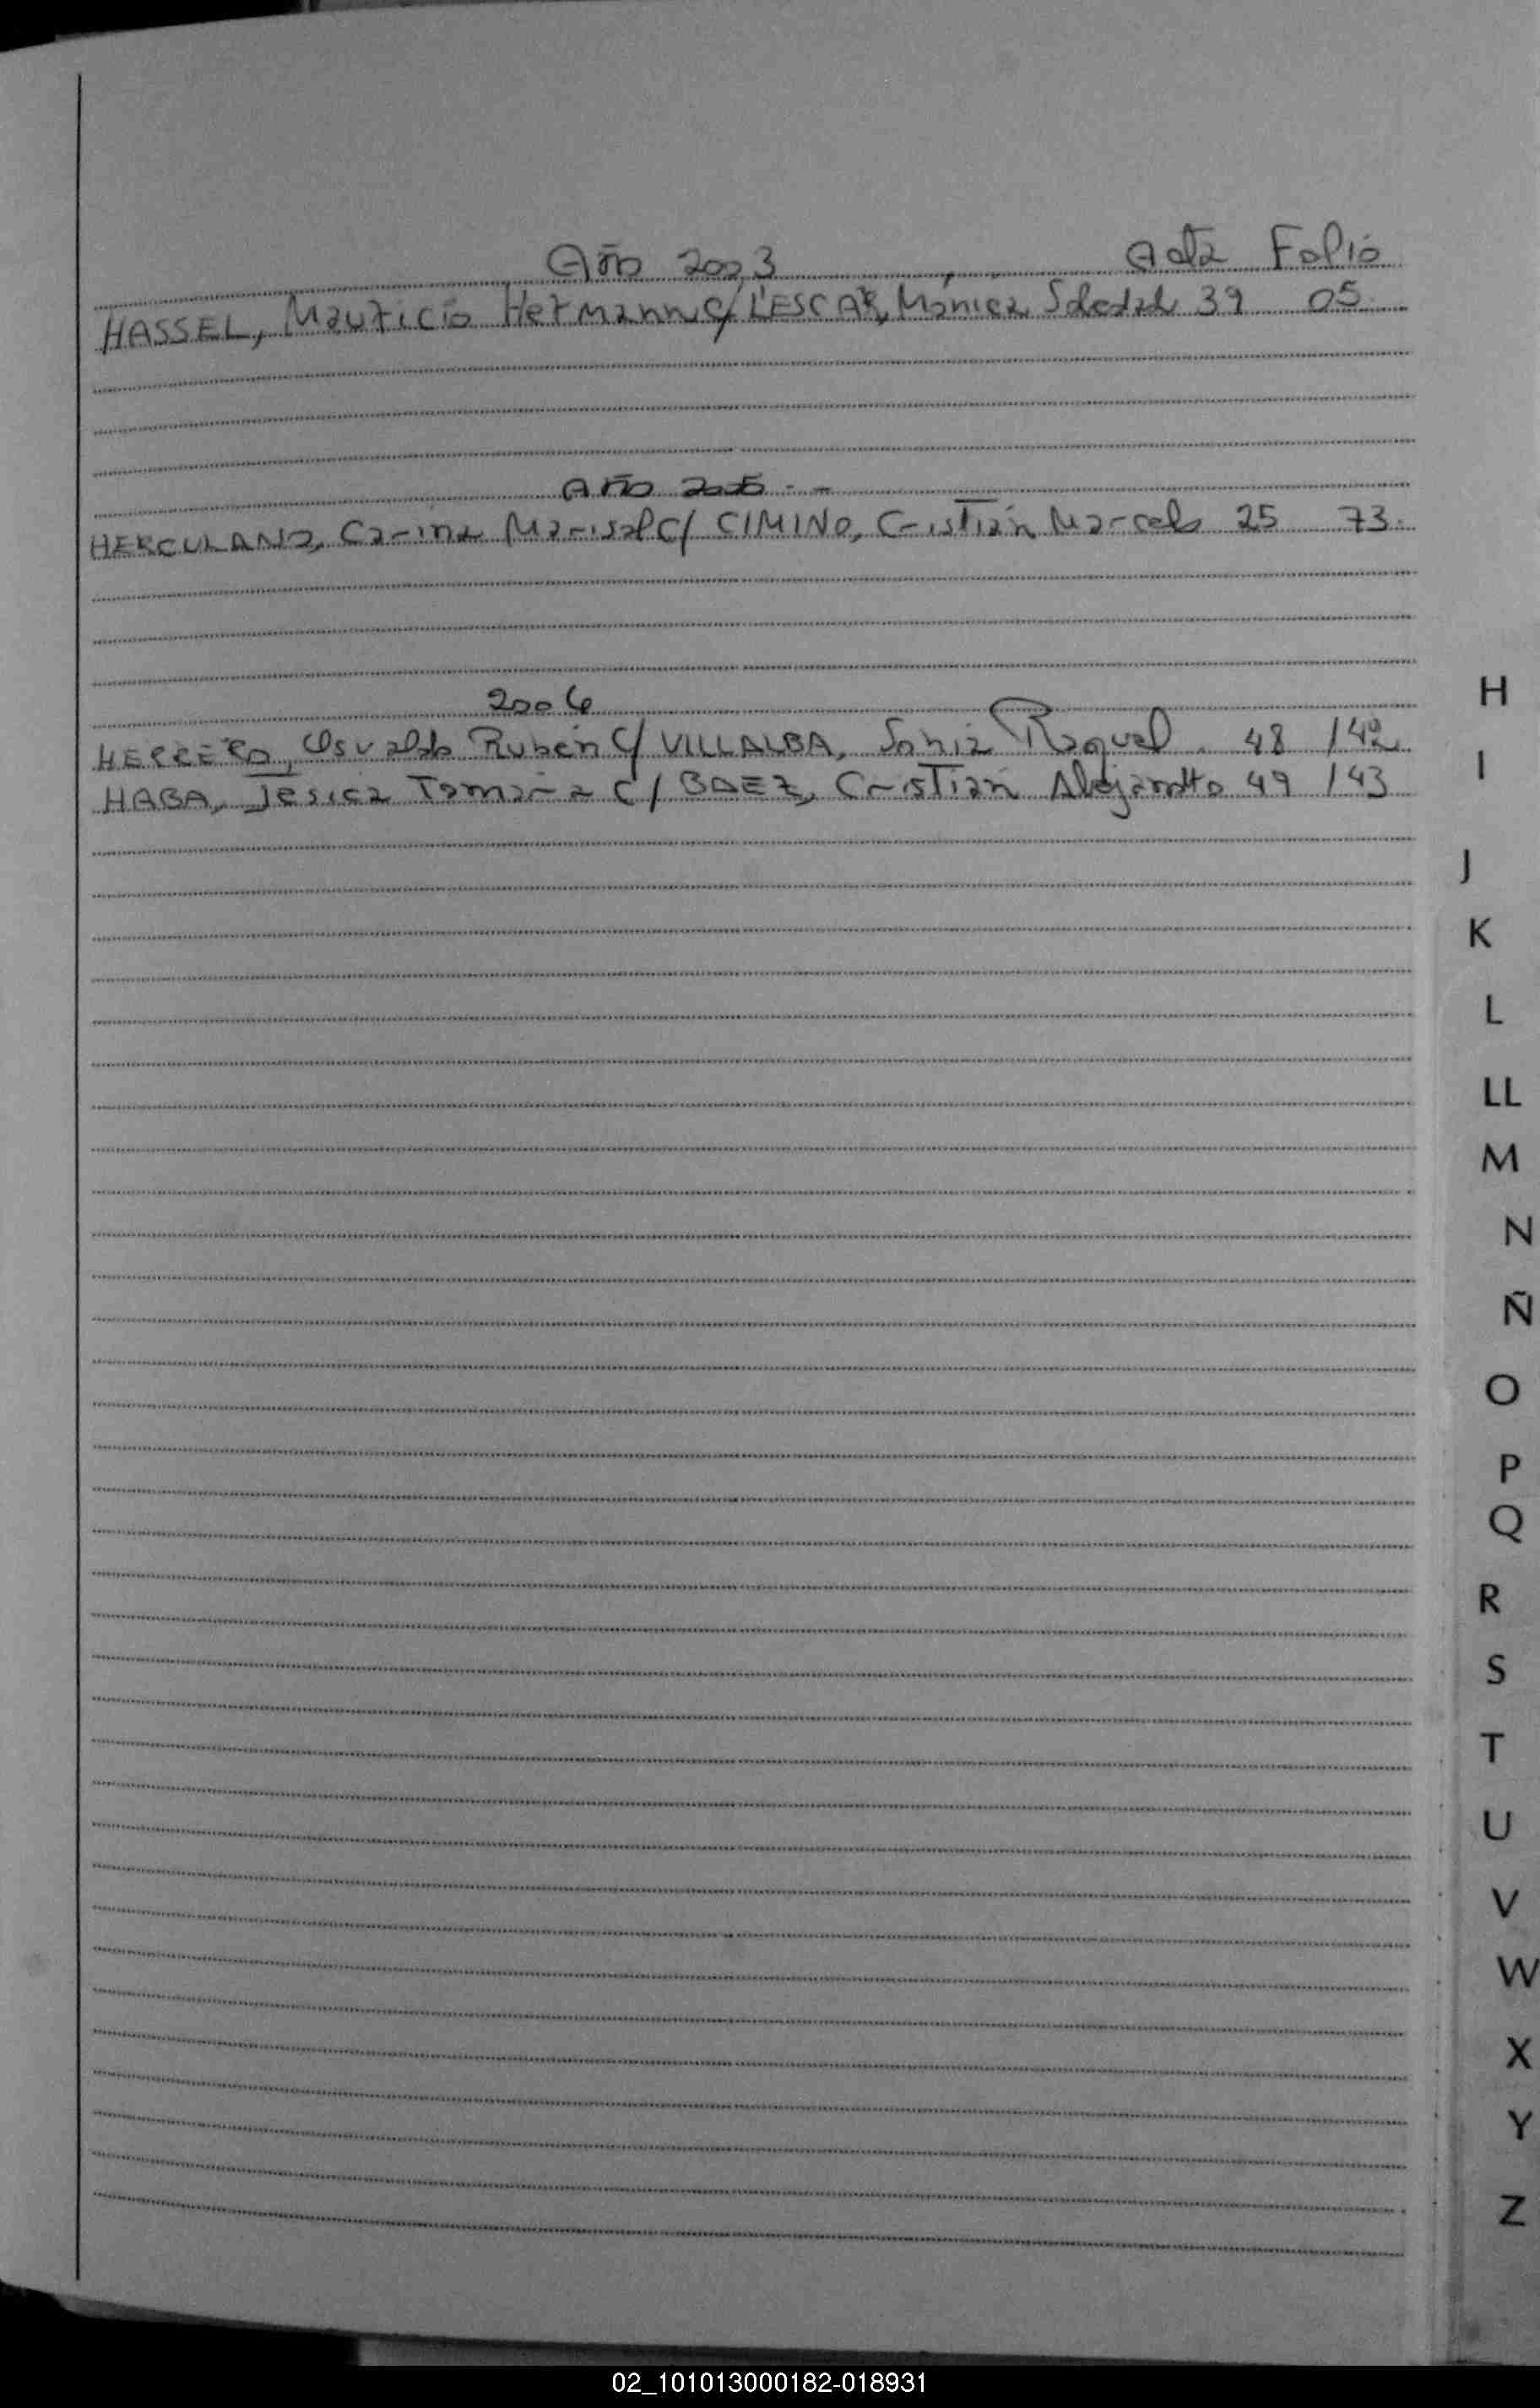 Año 2003 Acta Folio
HASSEL, Mauricio Hermann C/ L'ESCAR, Mónica Soledad 39 05.
Año 2005 - -
HERCULANO, Carina Marisol C/ CIMINO, Cristian Marcelo 25 73.
2006
HERRERO, Osvaldo Rubén C/ VILLALBA, Sonia Raquel. 48 142
HABA, Jesica Tamara C/ BAEZ, Cristian Alejandro 49 143
H
I
J
K
L
LL
M
N
Ñ
O
P
Q
R
S
T
U
V
W
X
Y
Z
02_101013000182-018931